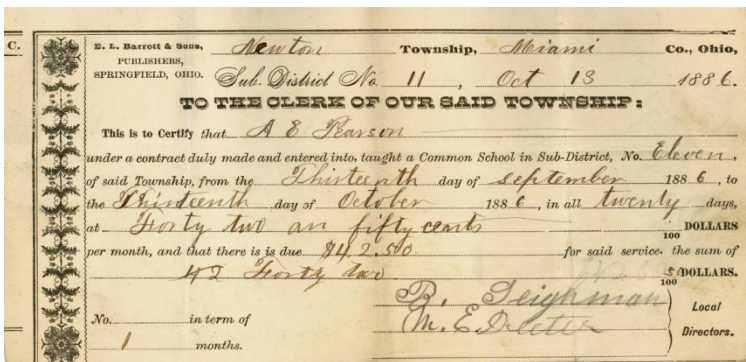 C. E. L. Barrett & Sons, Newton Township, Miami Co., Ohio,
PUBLISHERS,
SPRINGFIELD, OHIO. Sub-District No. 11, Oct 13 1886.
TO THE CLERK OF OUR SAID TOWNSHIP:
This is to Certify that A E Pearson
under a contract duly made and entered into, taught a Common School in Sub-District, No. Eleven,
of said Township, from the Thirteenth day of september 1886, to
the Thirteenth day of October 1886, in all twenty days,
at Forty two an fifty cents 100 DOLLARS
per month, and that there is is due $42.50 for said service the sum of
42 Forty two 50 100 DOLLARS.
B. Leighman
No. in term of M. E. Deeter Local
1 months. Directors.